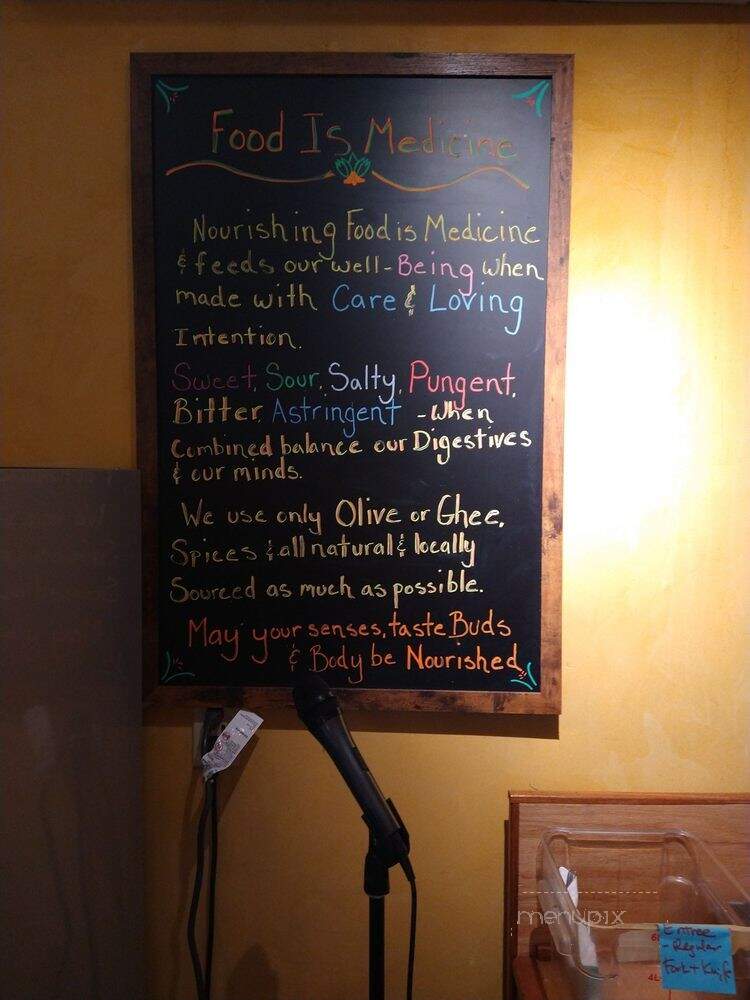 Food Is Medicine
Nourishing Food is Medicine
& feeds our well-Being when
made with Care & Loving
Intention.
Sweet, Sour, Salty, Pungent,
Bitter, Astringent - when
Combined balance our Digestives
& our minds.
We use only Olive or Ghee,
Spices & all natural & locally
Sourced as much as possible.
May your senses, taste Buds
& Body be Nourished
menupix
Entree
- Regular
Fork + Knife